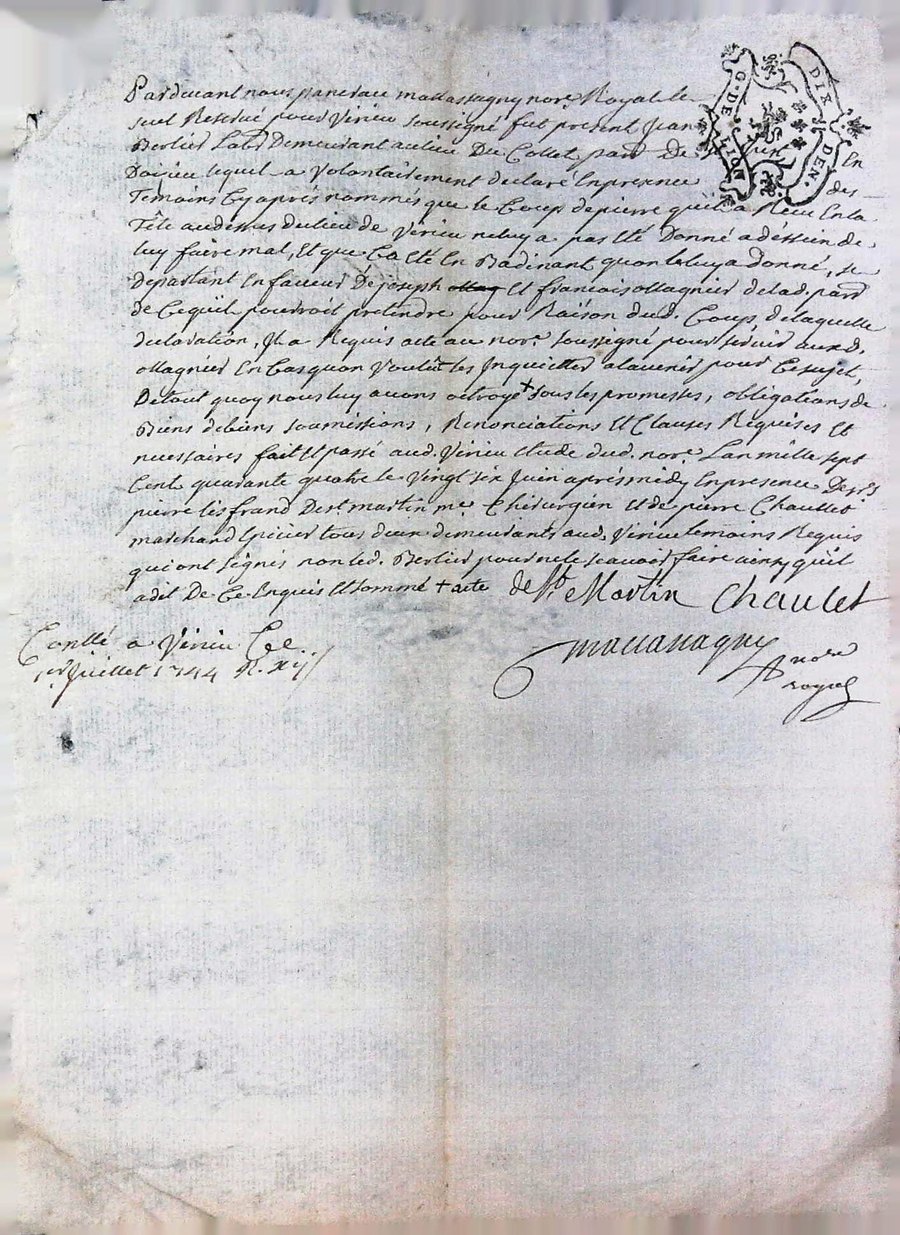 Pardevant nous pancrace massassagny nore Royal le
seul Reservé pour Virieu soussigné fut present Jean
Berlier Labr Demeurant au lieu Du Collet parr De En
Doirieu lequel a Volontairement declaré En presence des
Temoins Cy aprés nommés que le Coup de pierre quil a Receu En la
Tête au dessus du lieu de Virieu ne luy a pas été Donné a dessein de
luy faire mal, Et que Ca été En Badinant quon le luy a donné, se
Departant En faveur De joseph Et francois Magnier de lad. parr
de Ce quil pourroit pretendre pour Raison dud. Coup, de laquelle
declaration, Jl a Requis acte au nore soussigné pour servir aux d.
Magnier En Cas quon Voulut les Jnquietter a lavenir pour Ce sujet,
De tout quoy nous luy avons octroyé + sous les promesses, obligations de
Biens de biens soumissions, Renonciations Et Clauses Requises Et
necessaires fait Et passé aud. Virieu Etude dud. nore Lan mille sept
Cent quarante quatre le Vingt six Juin aprés midy En presence De srs
pierre lisfrand De st martin me Chirurgien Et de pierre Chaullet
marchand Epicier tous deux demeurants aud. Virieu temoins Requis
qui ont signés non led. Berlier pour ne le scavoir faire ainsy quil
a dit De Ce Enquis Et sommé + acte de st Martin Chaulet
Conllé a Virieu Ce
1er Juillet 1744 R. xij s
nore
royal
G. DE LION
DIX DEN.